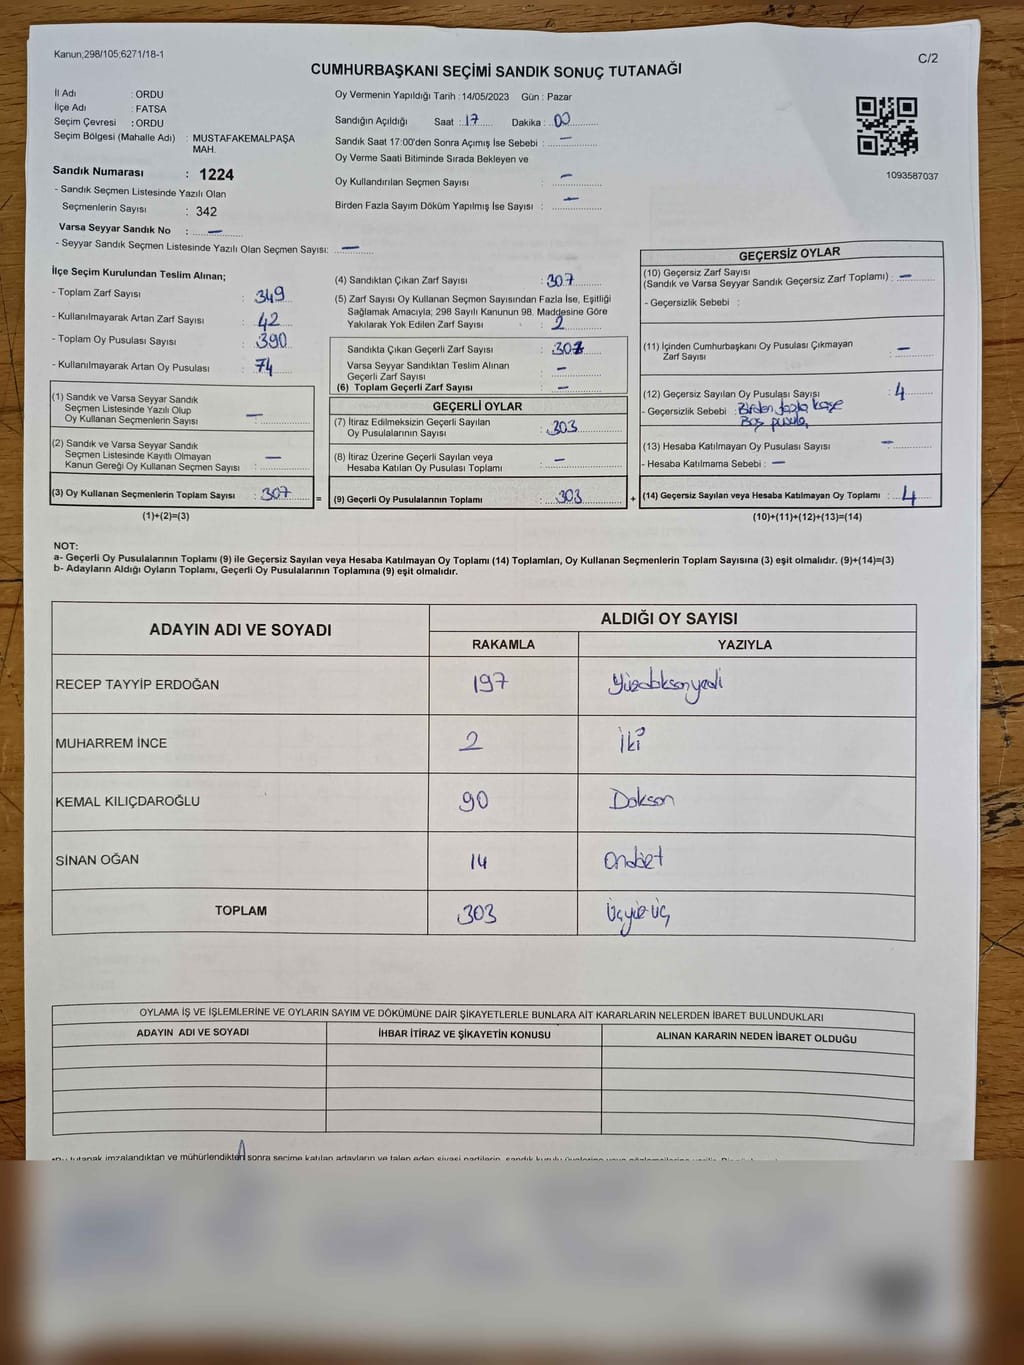 Kanun;298/105;6271/18-1
C/2
CUMHURBAŞKANI SEÇİMİ SANDIK SONUÇ TUTANAĞI
İl Adı : ORDU
İlçe Adı : FATSA
Seçim Çevresi : ORDU
Seçim Bölgesi (Mahalle Adı) : MUSTAFAKEMALPAŞA
MAH.
Sandık Numarası : 1224
- Sandık Seçmen Listesinde Yazılı Olan
Seçmenlerin Sayısı : 342
Varsa Seyyar Sandık No : —
- Seyyar Sandık Seçmen Listesinde Yazılı Olan Seçmen Sayısı: —
Oy Vermenin Yapıldığı Tarih : 14/05/2023 Gün : Pazar
Sandığın Açıldığı Saat : 17 Dakika : 00
Sandık Saat 17:00'den Sonra Açımış İse Sebebi : —
Oy Verme Saati Bitiminde Sırada Bekleyen ve
Oy Kullandırılan Seçmen Sayısı : —
Birden Fazla Sayım Döküm Yapılmış İse Sayısı : —
1093587037
İlçe Seçim Kurulundan Teslim Alınan;
- Toplam Zarf Sayısı : 349
- Kullanılmayarak Artan Zarf Sayısı : 42
- Toplam Oy Pusulası Sayısı : 390
- Kullanılmayarak Artan Oy Pusulası : 74
(1) Sandık ve Varsa Seyyar Sandık
Seçmen Listesinde Yazılı Olup
Oy Kullanan Seçmenlerin Sayısı : —
(2) Sandık ve Varsa Seyyar Sandık
Seçmen Listesinde Kayıtlı Olmayan
Kanun Gereği Oy Kullanan Seçmen Sayısı : —
(3) Oy Kullanan Seçmenlerin Toplam Sayısı : 307
(1)+(2)=(3)
=
(4) Sandıktan Çıkan Zarf Sayısı : 307
(5) Zarf Sayısı Oy Kullanan Seçmen Sayısından Fazla İse, Eşitliği
Sağlamak Amacıyla; 298 Sayılı Kanunun 98. Maddesine Göre
Yakılarak Yok Edilen Zarf Sayısı : 2
Sandıkta Çıkan Geçerli Zarf Sayısı : 307
Varsa Seyyar Sandıktan Teslim Alınan
Geçerli Zarf Sayısı : —
(6) Toplam Geçerli Zarf Sayısı : —
GEÇERLİ OYLAR
(7) İtiraz Edilmeksizin Geçerli Sayılan
Oy Pusulalarının Sayısı : 303
(8) İtiraz Üzerine Geçerli Sayılan veya
Hesaba Katılan Oy Pusulası Toplamı : —
(9) Geçerli Oy Pusulalarının Toplamı : 303
+
GEÇERSİZ OYLAR
(10) Geçersiz Zarf Sayısı
(Sandık ve Varsa Seyyar Sandık Geçersiz Zarf Toplamı) : —
- Geçersizlik Sebebi :
(11) İçinden Cumhurbaşkanı Oy Pusulası Çıkmayan
Zarf Sayısı : —
(12) Geçersiz Sayılan Oy Pusulası Sayısı : 4
- Geçersizlik Sebebi : Birden fazla kaşe
Boş pusula
(13) Hesaba Katılmayan Oy Pusulası Sayısı : —
- Hesaba Katılmama Sebebi : —
(14) Geçersiz Sayılan veya Hesaba Katılmayan Oy Toplamı : 4
(10)+(11)+(12)+(13)=(14)
NOT:
a- Geçerli Oy Pusulalarının Toplamı (9) ile Geçersiz Sayılan veya Hesaba Katılmayan Oy Toplamı (14) Toplamları, Oy Kullanan Seçmenlerin Toplam Sayısına (3) eşit olmalıdır. (9)+(14)=(3)
b- Adayların Aldığı Oyların Toplamı, Geçerli Oy Pusulalarının Toplamına (9) eşit olmalıdır.
ADAYIN ADI VE SOYADI ALDIĞI OY SAYISI
RAKAMLA YAZIYLA
RECEP TAYYİP ERDOĞAN 197 Yüzdoksanyedi
MUHARREM İNCE 2 İki
KEMAL KILIÇDAROĞLU 90 Doksan
SİNAN OĞAN 14 Ondört
TOPLAM 303 Üçyüz üç
OYLAMA İŞ VE İŞLEMLERİNE VE OYLARIN SAYIM VE DÖKÜMÜNE DAİR ŞİKAYETLERLE BUNLARA AİT KARARLARIN NELERDEN İBARET BULUNDUKLARI
ADAYIN ADI VE SOYADI İHBAR İTİRAZ VE ŞİKAYETİN KONUSU ALINAN KARARIN NEDEN İBARET OLDUĞU
tutanak imzalandıktan ve mühürlendikten sonra seçime katılan adayların ve talep eden siyasi partilerin, sandık kurulu